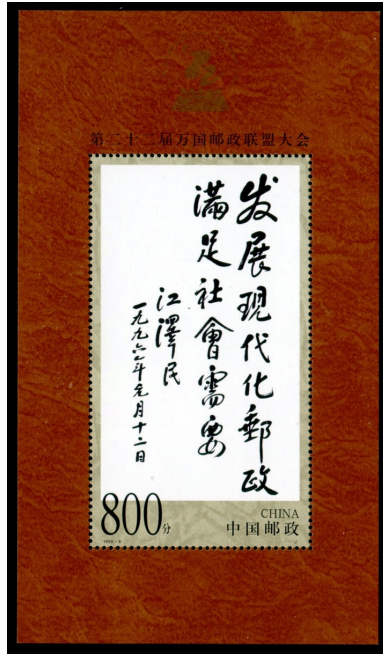 第二十二届万国邮政联盟大会
发展现代化郵政
滿足社會需要
江澤民
一九九六年元月十二日
800分
CHINA
中国邮政